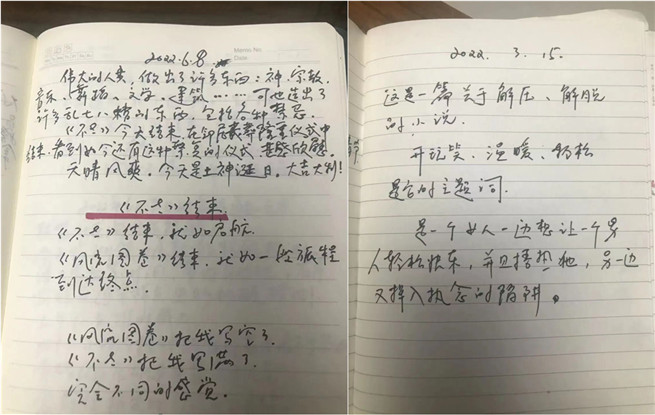 2022.6.8.
伟大的人类，做出了许多东西：神、宗教、
音乐、舞蹈、文学、建筑……可也造出了
许多乱七八糟的东西，包括各种禁忌。
《不老》今天结束，在邻居载寿隆重仪式中
结束，看到如今还有这种繁复的仪式，甚感欣慰。
天晴风爽，今天是土神诞日。大吉大利！
《不老》结束
《不老》结束，就如启航
《风流图卷》结束，就如一段旅程
到达终点。
《风流图卷》把我写空了，
《不老》把我写满了。
完全不同的感觉。
2022. 3. 15.
这是一篇关于解压、解脱
的小说。
开玩笑、温暖、轻松
是它的主题词。
是一个女人一边想让一个男
人轻松快乐，并且捂热他，另一边
又掉入执念的陷阱。